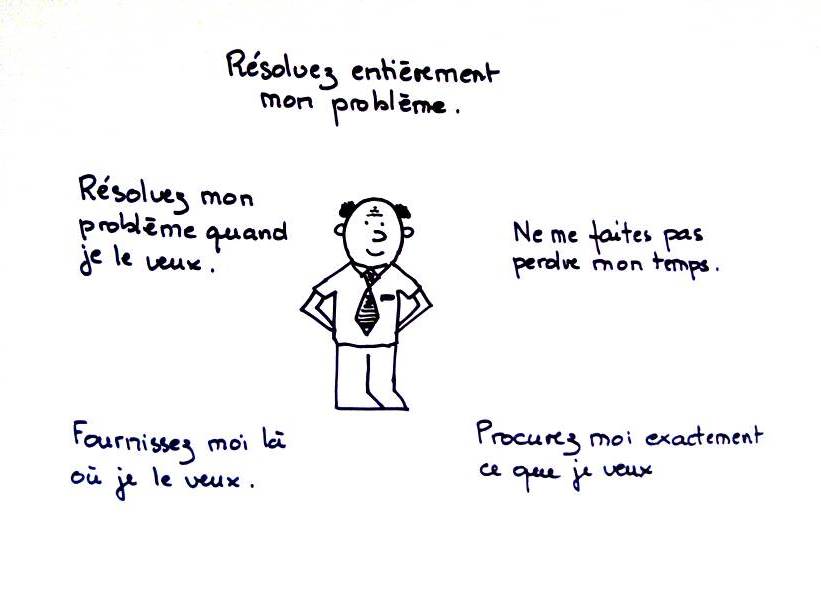 Résolvez entièrement
mon problème.
Résolvez mon
problème quand
je le veux.
Ne me faites pas
perdre mon temps.
Fournissez moi là
où je le veux.
Procurez moi exactement
ce que je veux